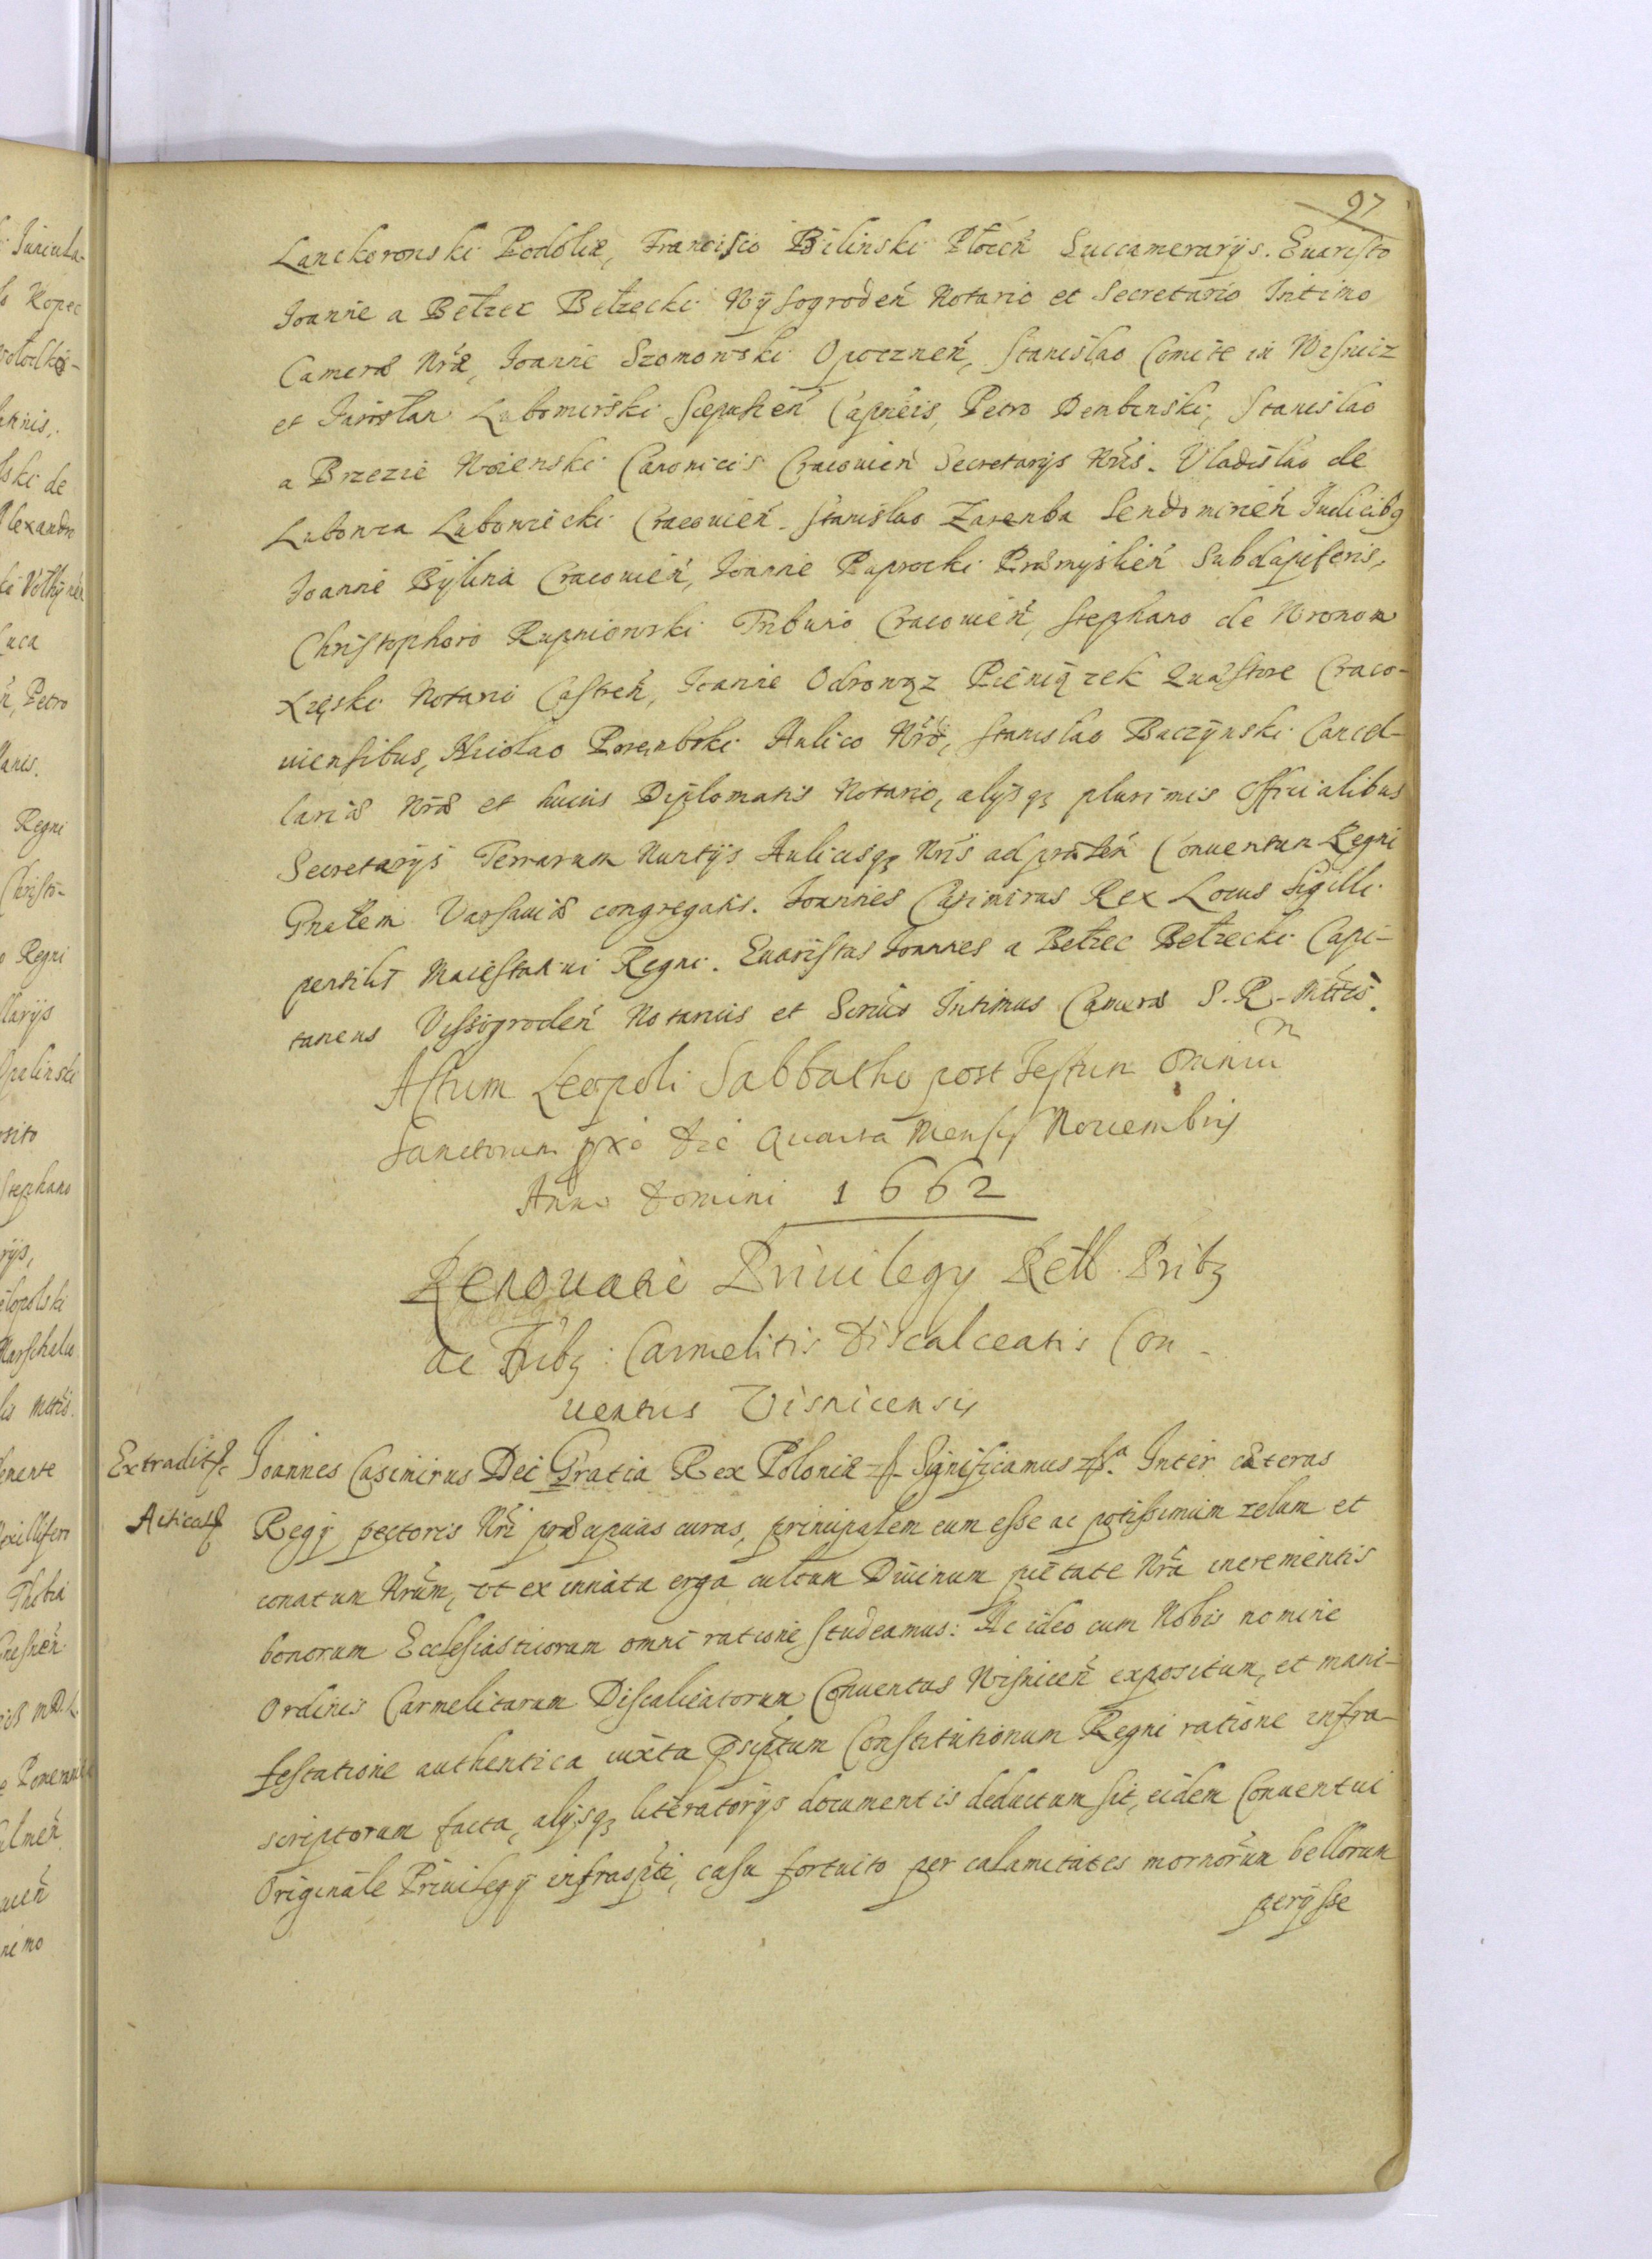 97
Lanckoronski Podoliæ, Francisco Bilinski Płoceń Succamerarijs. Euaristo
Joanne a Bełzec Bełzecki Wÿsogrodeń Notario et Secretario Intimo
Cameræ Nræ, Joanne Szomowski Opoczneń, Stanislao Comite in Wisnicz
et Jarosłau Lubomirski Scepusień Capneis, Petro Dembinski, Stanislao
a Brzezie Woienski Canonicis Cracouień Secretarijs Nris. Vladislao de
Lubowza Lubowiecki Cracouień. Stanislao Zaremba Sendomirień Judicibq
Joanne Bÿlina Cracouień, Joanne Paprocki Præmyslień Subdapiferis,
Christophoro Rupniowski Tribuno Cracouień, Stephano de Wronow
Łręski Notario Castreń, Joanne Odrowąz Pieniązek Quæstore Craco-
uiensibus, Nicolao Porembski Aulico Nro, Stanislao Baczÿnski Cancel-
lariæ Nræ et huius Diplomatis Notario, alijsqꝫ plurimis Officialibus
Secretarijs Terrarum Nuntijs Aulicisqꝫ Nris ad præsēń Conuentum Regni
Gnałem Varsauiæ congregatis. Joannes Casimirus Rex Locus Sigilli
pensilis Maiestatiui Regni. Euaristus Joannes a Bełzec Bełzecki Capi-
taneus Vissogrodeń Notarius et Srius Intimus Cameræ S. R. Mttis.
Actum Leopoli Sabbatho post Festum Omniũ
Sanctorum pxo die Quarta Mensis Nouembris
Anno Domini 1662
Renouatio Priuilegy Rell Pribꝫ
ac Fribꝫ: Carmelitis Discalceatis Con-
uentus Visnicensis
Extradit
Acticat
Joannes Casimirus Dei Gratia Rex Poloniæ Significamus Inter cæteras
Regij pectoris Nri præcipuas curas, principalem eum esse ac potissimum zelum et
conatum Nrum, vt ex innata erga cultum Diuinum pietate Nra incrementis
bonorum Ecclesiasticorum omni ratione studeamus: Ac ideo cum Nobis nomine
Ordinis Carmelitarum Discalceatorum Conuentus Wisniceń expositum, et mani-
festatione authentica iuxta psciptum Constitutionum Regni ratione infra-
scriptorum facta, alijsqꝫ literatorijs documentis deductum sit, eidem Conuentui
Originale Priuilegij infrasptti, casu fortuito per calamitates mornorum bellorum
perijsse